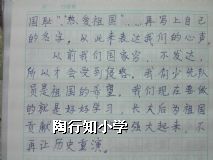 国耻”“热爱祖国”……再写上自己
的名字，从此来表达我们的心声。
从前我们国家穷，不发达，
所以才会受到侵略。我们少先队
员是祖国的希望。我们现在要做
的就是好好学习，长大后为祖国
贡献
强大起来，不
再让历史重演。
陶行知小学